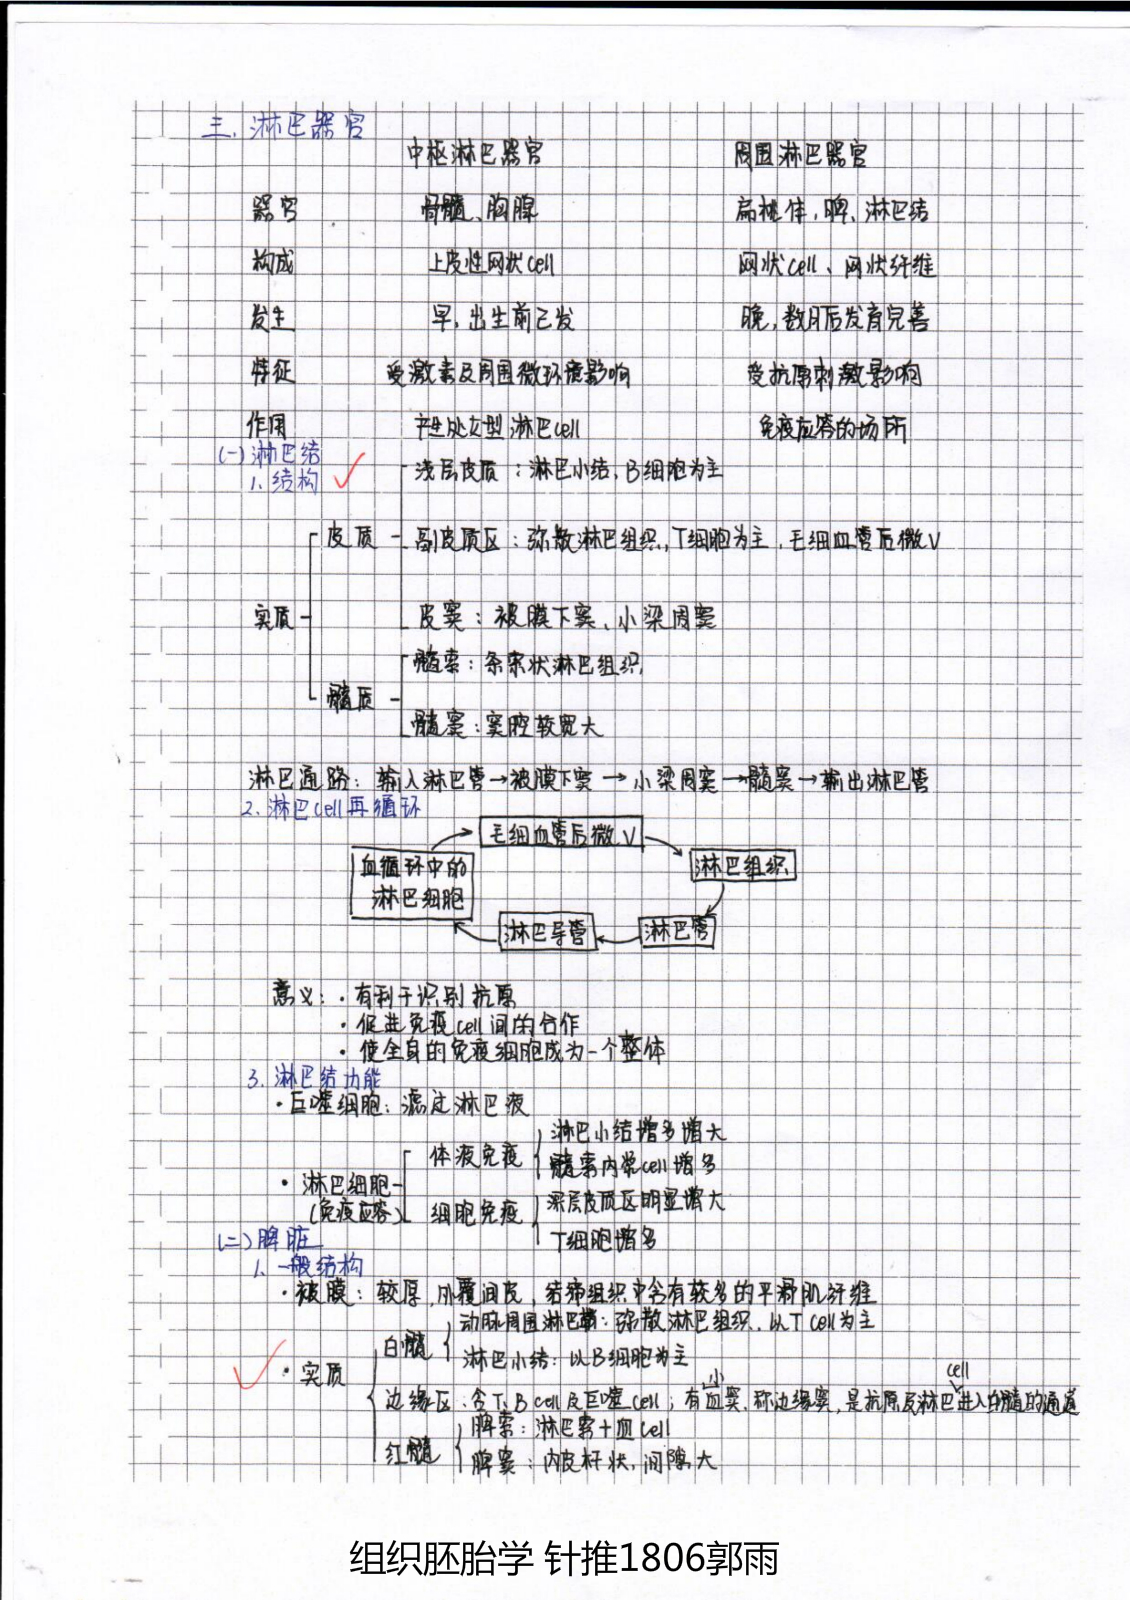 三、淋巴器官
中枢淋巴器官 周围淋巴器官
器官 骨髓、胸腺 扁桃体,脾、淋巴结
构成 上皮性网状cell 网状cell、网状纤维
发生 早,出生前已发 晚,数月后发育完善
特征 受激素及周围微环境影响 受抗原刺激影响
作用 产生处女型淋巴cell 免疫应答的场所
(一)淋巴结
1、结构
浅层皮质:淋巴小结、B细胞为主
皮质 副皮质区:弥散淋巴组织,T细胞为主,毛细血管后微V
实质 皮窦:被膜下窦、小梁周窦
髓索:条索状淋巴组织
髓质
髓窦:窦腔较宽大
淋巴通路:输入淋巴管→被膜下窦→小梁周窦→髓窦→输出淋巴管
2、淋巴cell再循环
毛细血管后微V
血循环中的
淋巴细胞
淋巴组织
淋巴导管 淋巴管
意义:·有利于识别抗原
·促进免疫cell间的合作
·使全身的免疫细胞成为一个整体
3、淋巴结功能
·巨噬细胞:滤过淋巴液
淋巴小结增多增大
体液免疫
髓索内浆cell增多
·淋巴细胞
(免疫应答)
细胞免疫
深层皮质区明显增大
T细胞增多
(二)脾脏
1、一般结构
·被膜:较厚,外覆间皮,结缔组织中含有较多的平滑肌纤维
动脉周围淋巴鞘:弥散淋巴组织、以T cell为主
白髓
淋巴小结:以B细胞为主
·实质
边缘区:含T、B cell及巨噬cell;有小血窦、称边缘窦,是抗原及淋巴cell进入白髓的通道
脾索:淋巴索+血cell
红髓
脾窦:内皮杆状,间隙大
组织胚胎学 针推1806郭雨